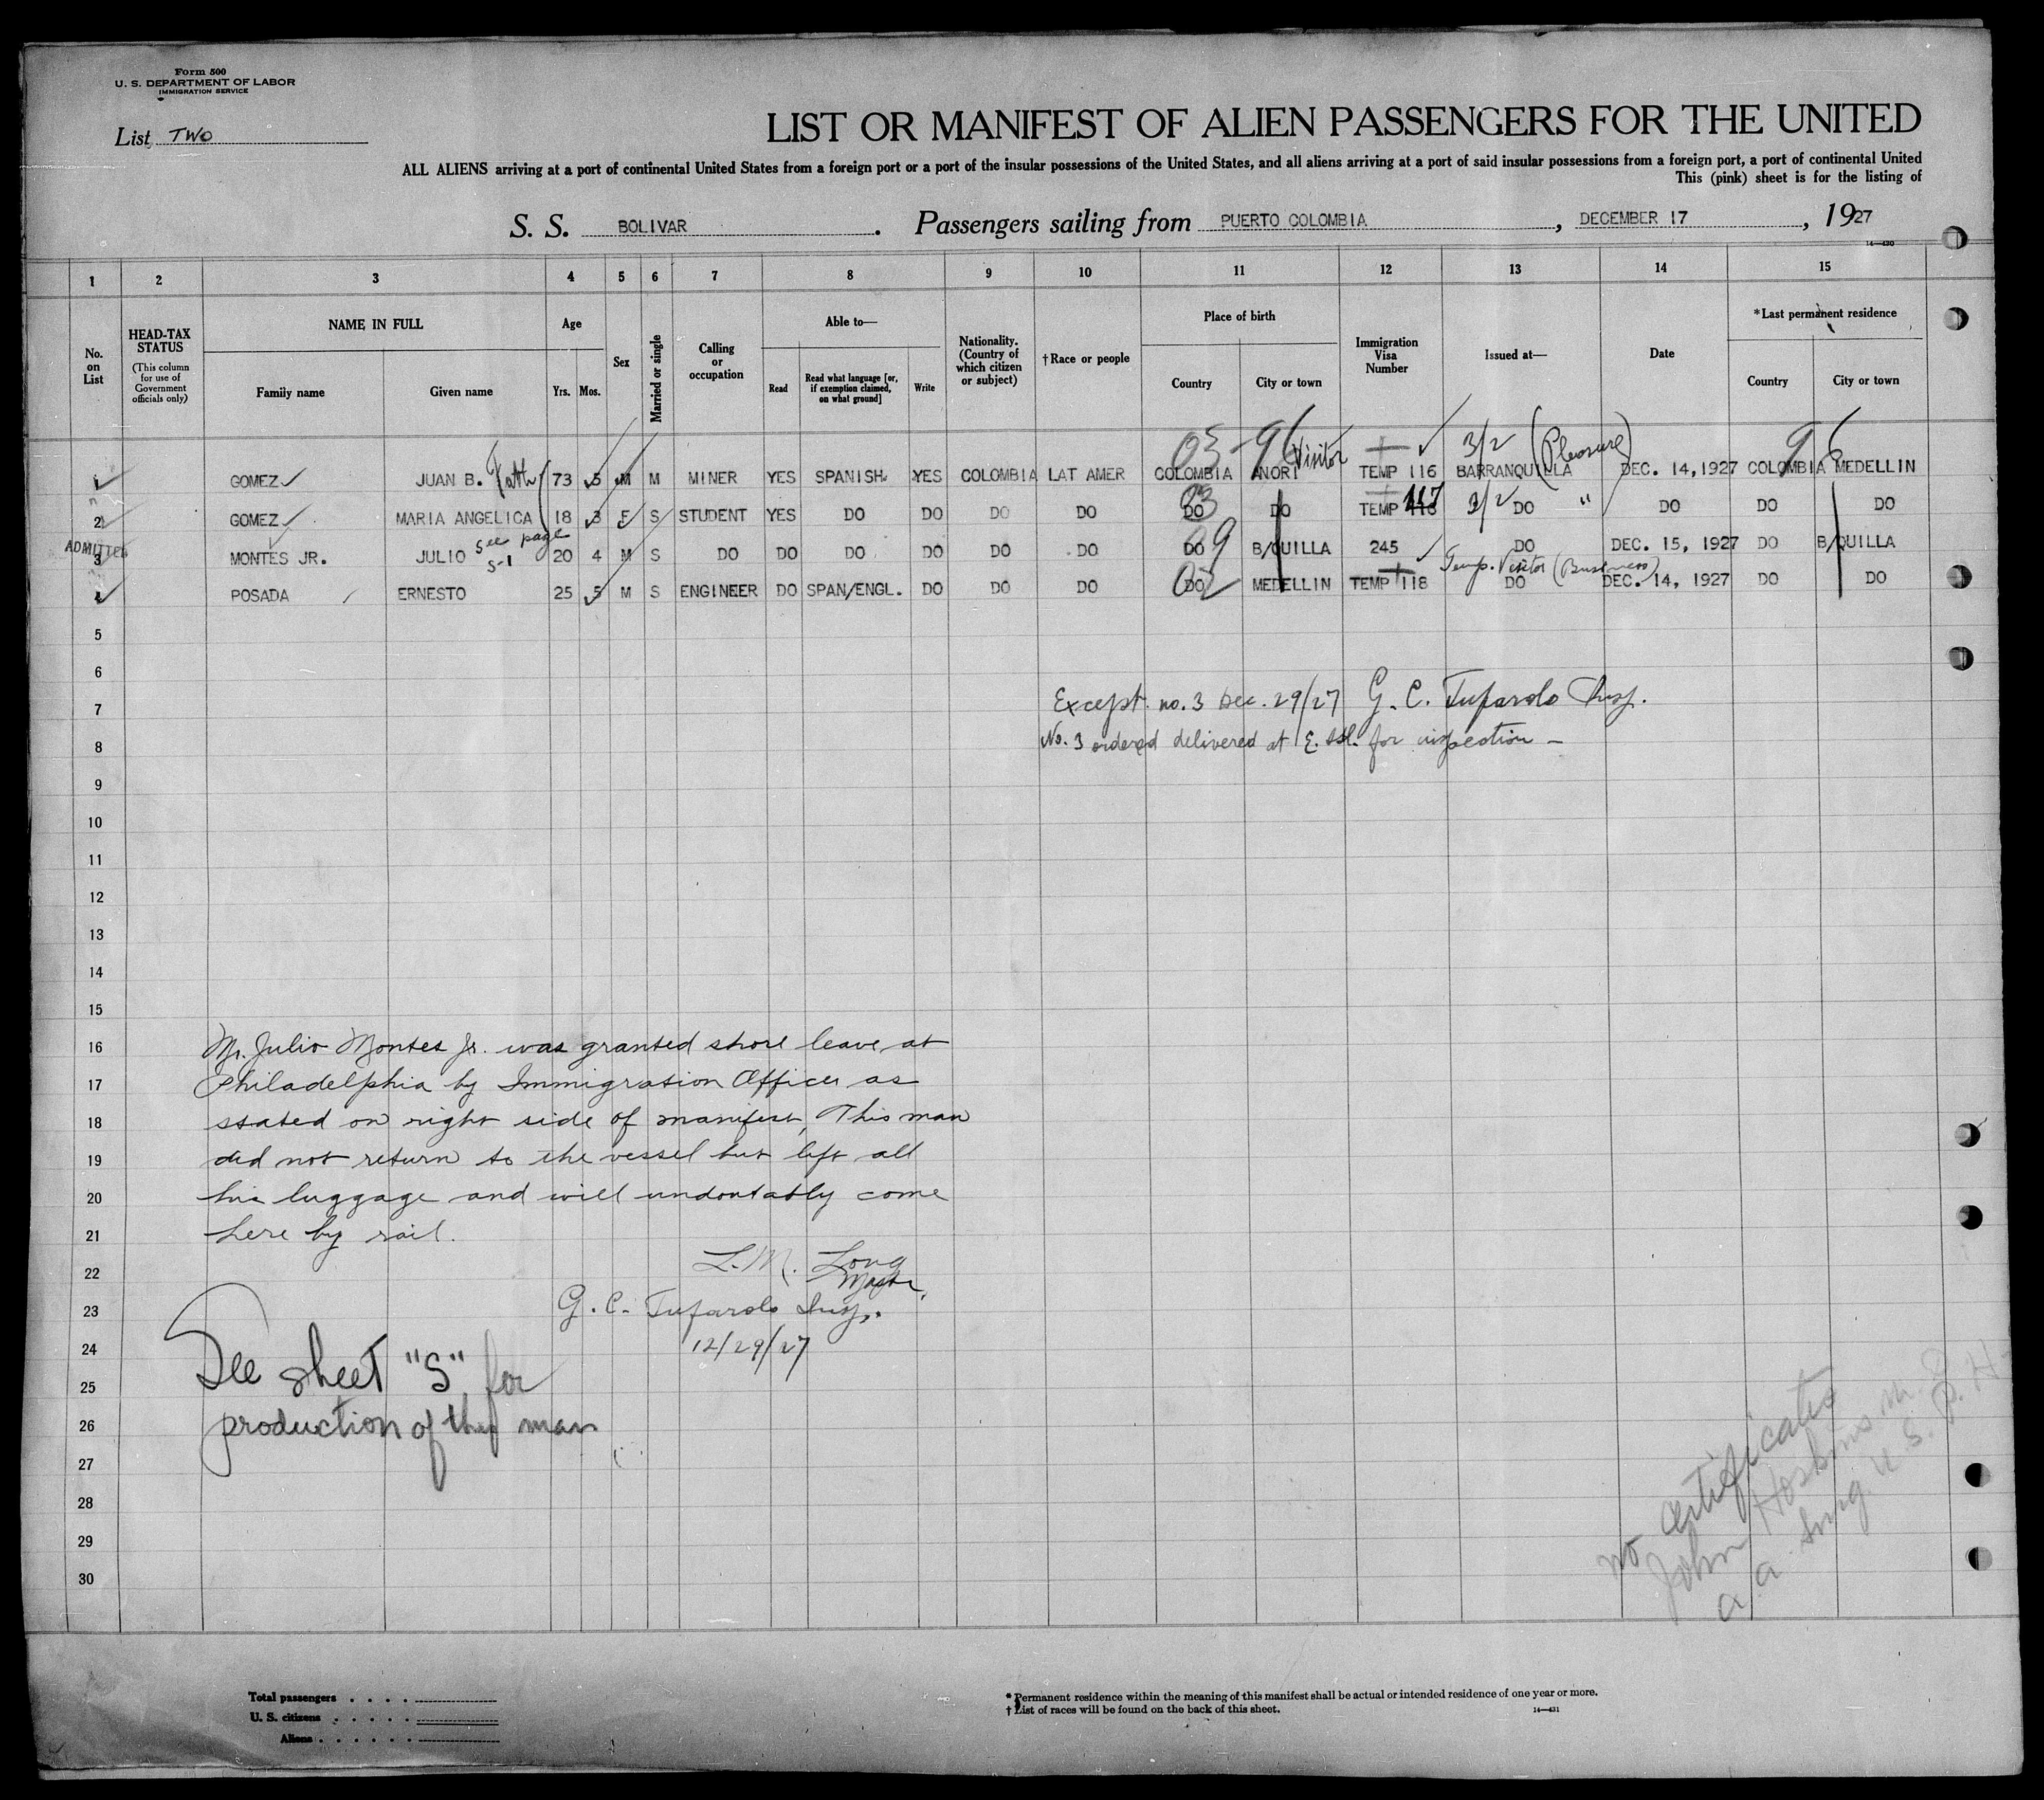 Form 500
U. S. DEPARTMENT OF LABOR
IMMIGRATION SERVICE
List TWO
LIST OR MANIFEST OF ALIEN PASSENGERS FOR THE UNITED
ALL ALIENS arriving at a port of continental United States from a foreign port or a port of the insular possessions of the United States, and all aliens arriving at a port of said insular possessions from a foreign port, a port of continental United
This (pink) sheet is for the listing of
S. S. BOLIVAR. Passengers sailing from PUERTO COLOMBIA, DECEMBER 17, 1927
14—430
1 2 3 4 5 6 7 8 9 10 11 12 13 14 15
No. on List
HEAD-TAX STATUS
(This column for use of Government officials only)
NAME IN FULL
Family name
Given name
Age
Yrs.
Mos.
Sex
Married or single
Calling or occupation
Able to—
Read
Read what language [or, if exemption claimed, on what ground]
Write
Nationality. (Country of which citizen or subject)
†Race or people
Place of birth
Country
City or town
Immigration Visa Number
Issued at—
Date
*Last permanent residence
Country
City or town
03 - 96 Visitor 3/2 (Pleasure) 96
1 GOMEZ JUAN B. 73 5 M M MINER YES SPANISH YES COLOMBIA LAT AMER COLOMBIA ANORI TEMP 116 BARRANQUILLA DEC. 14,1927 COLOMBIA MEDELLIN
117 3/2 "
2 GOMEZ MARIA ANGELICA 18 3 F S STUDENT YES DO DO DO DO DO DO TEMP 118 DO DO DO DO
ADMITTED
See page S-1
3 MONTES JR. JULIO 20 4 M S DO DO DO DO DO DO DO B/QUILLA 245 DO DEC. 15, 1927 DO B/QUILLA
Temp. Visitor (Business)
4 POSADA ERNESTO 25 5 M S ENGINEER DO SPAN/ENGL. DO DO DO DO MEDELLIN TEMP 118 DO DEC. 14, 1927 DO DO
5
6
7
Except no. 3 Dec. 29/27 G. C. Tufarolo Insp.
8
No. 3 ordered delivered at E. Isl. for inspection —
9
10
11
12
13
14
15
16 Mr. Julio Montes Jr. was granted shore leave at
17 Philadelphia by Immigration Officer as
18 stated on right side of manifest, This man
19 did not return to the vessel but left all
20 his luggage and will undoutably come
21 here by rail.
22 L. M. Long
Master.
23 G. C. Tufarolo Insp.
24 12/29/27
25 See sheet "S" for
26 production of this man
27
28
29
30
no certificates
John Hoskins M. D.
a. a. Surg U. S. P. H
Total passengers
U. S. citizens
Aliens
* Permanent residence within the meaning of this manifest shall be actual or intended residence of one year or more.
† List of races will be found on the back of this sheet.
14—431